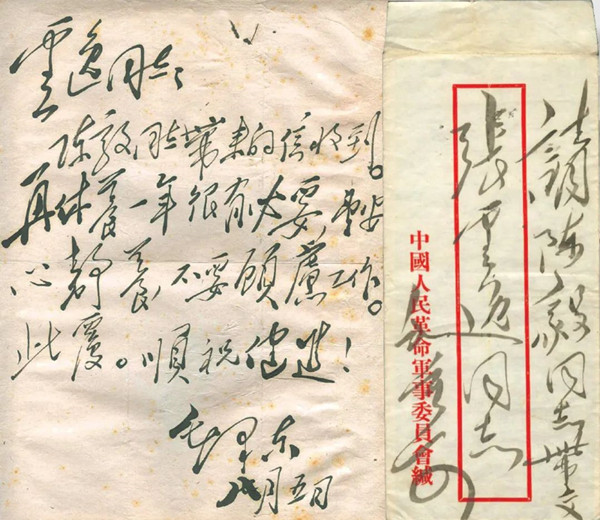 雲逸同志：
陈毅同志帶来的信收到。
再休養一年很有必要，望安
心静養，不要顧慮工作。
此覆。順祝健進！
毛澤东
八月五日
請陈毅同志帶交
張雲逸同志
中國人民革命軍事委員會緘